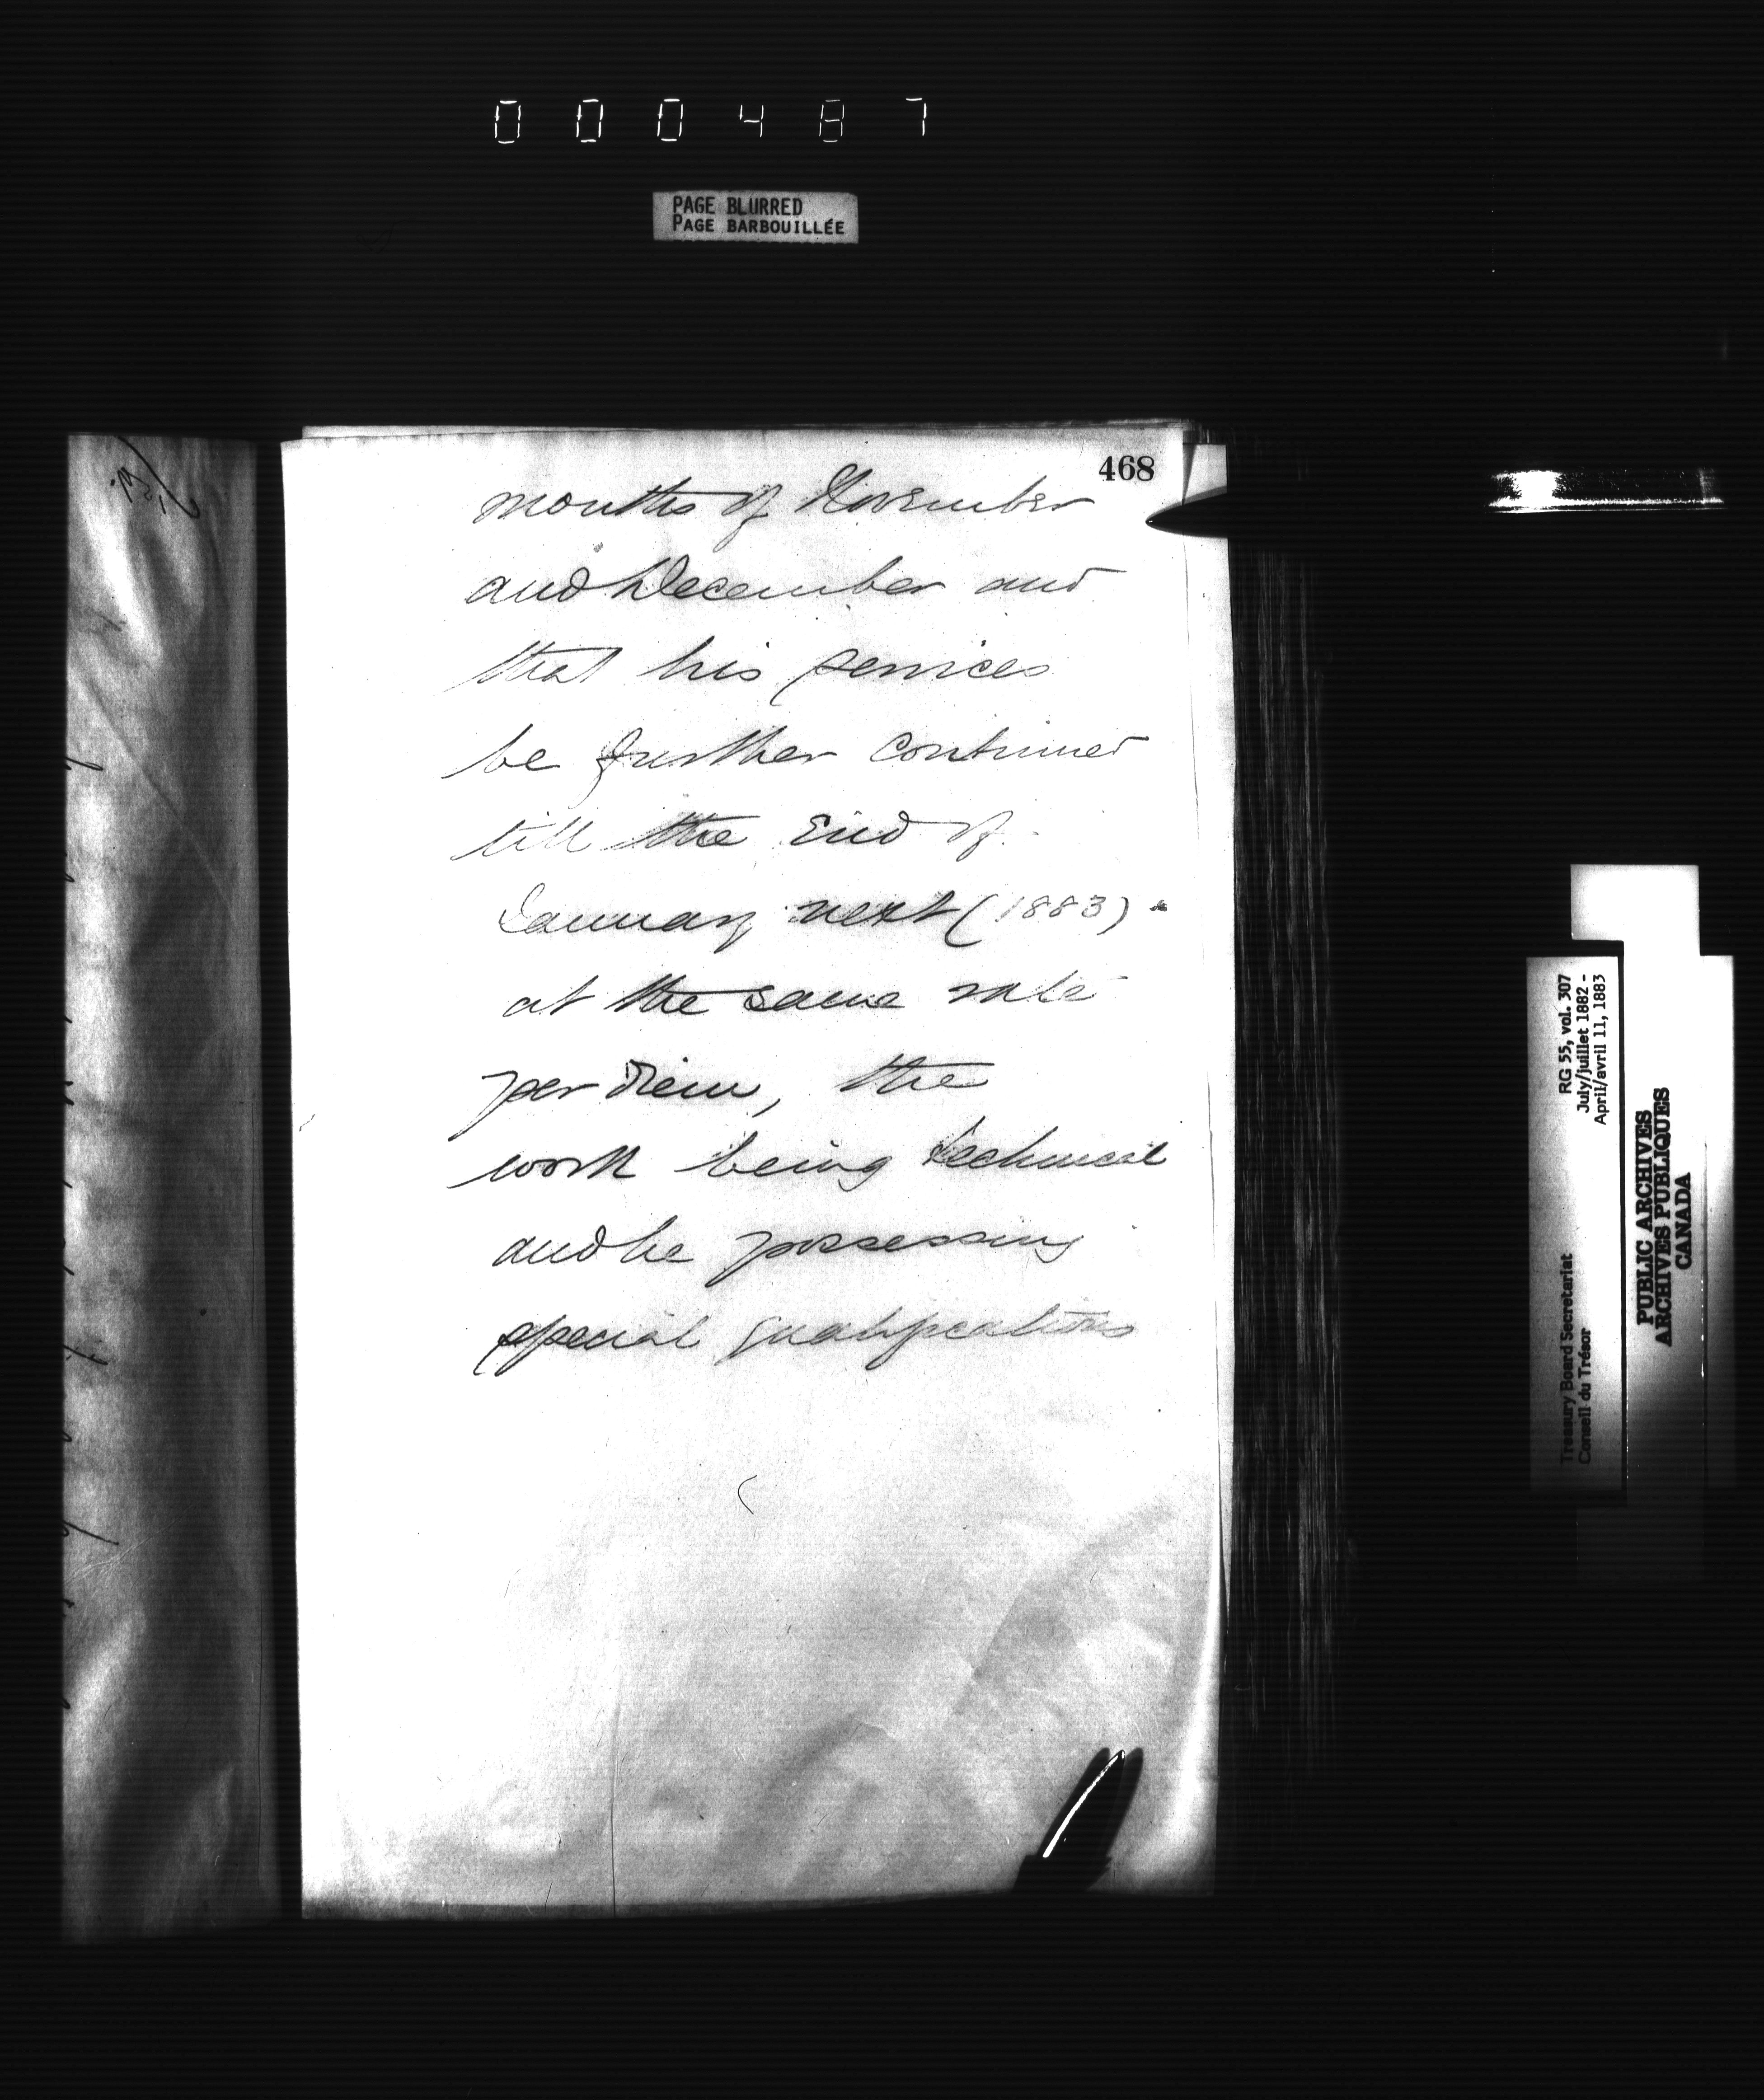 000487
PAGE BLURRED
PAGE BARBOUILLÉE
468
months of November
and December and
that his services
be further continued
till the End of
January next (1883)
at the same rate
per diem, the
work being technical
and he possessing
special qualifications
RG 55, vol. 307
July/juillet 1882 -
April/avril 11, 1883
Treasury Board Secretariat
Conseil du Trésor
PUBLIC ARCHIVES
ARCHIVES PUBLIQUES
CANADA